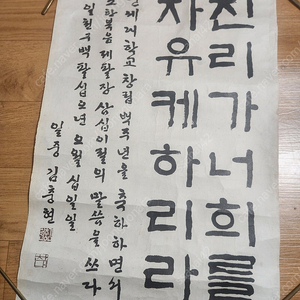 진리가너희를
자유케하리라
연세대학교 창립 백주년을 축하하면서
요한복음 제팔장 삼십이절의 말씀을 쓰다
일천구백팔십오년 오월 십일일
일중 김충현